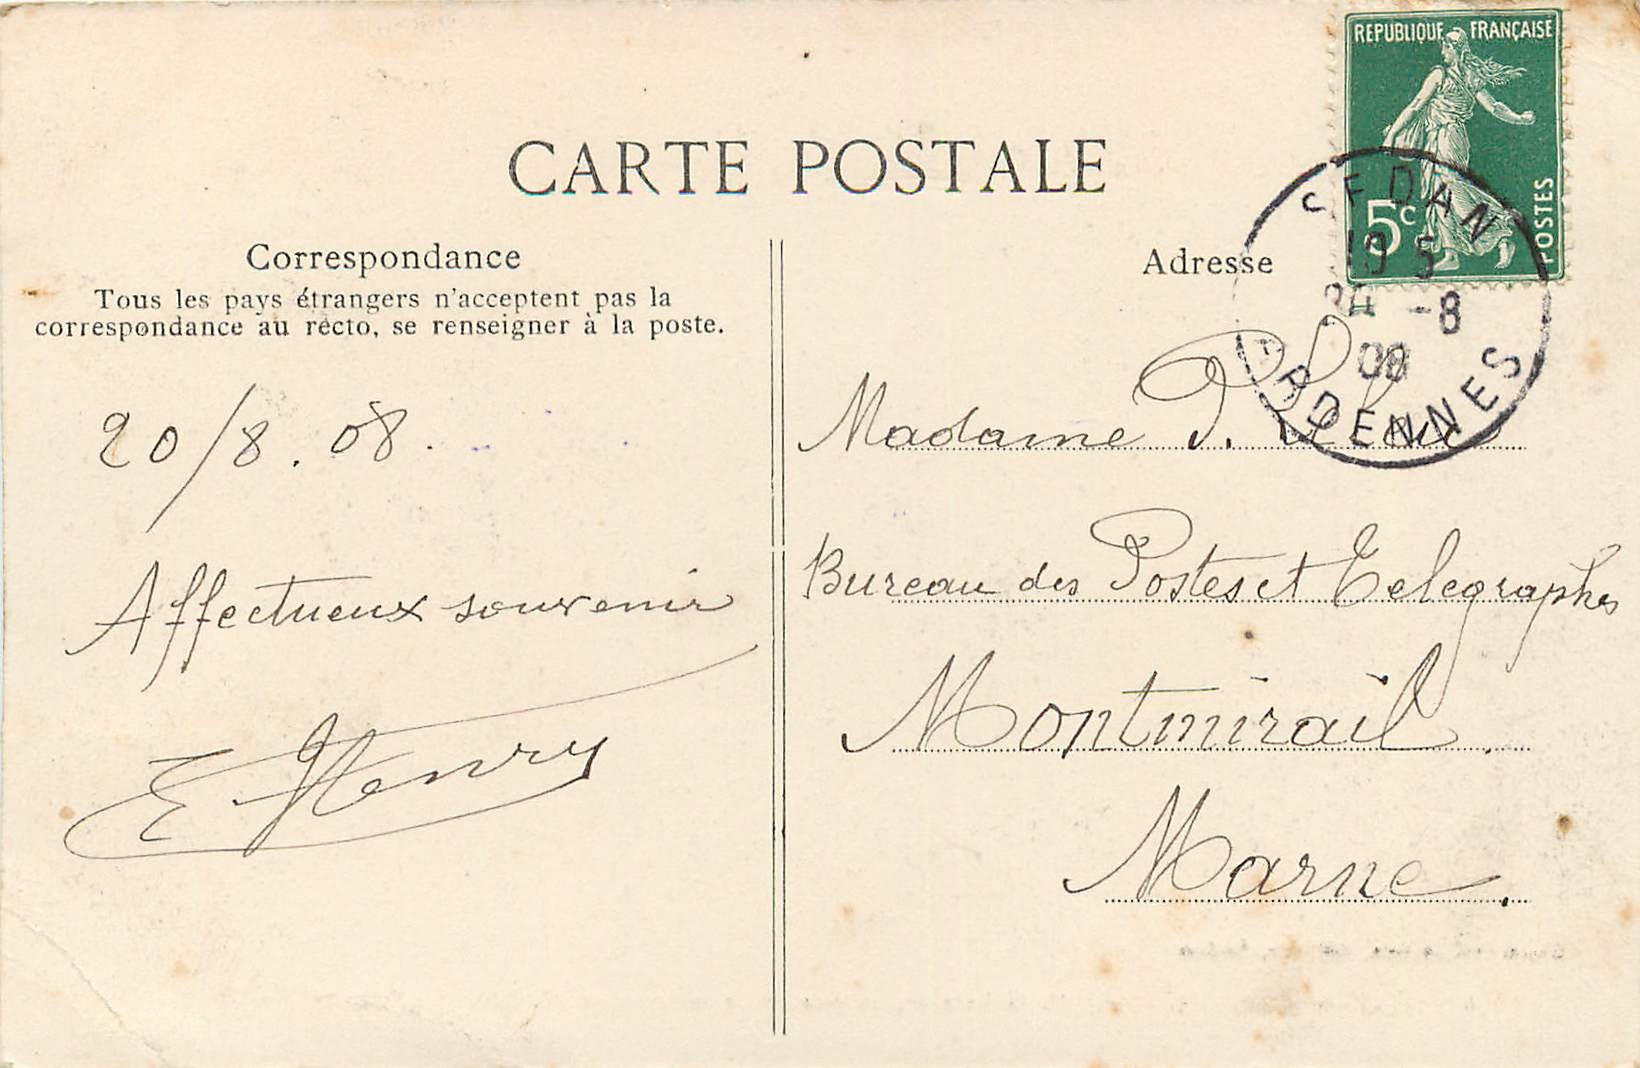 CARTE POSTALE
RÉPUBLIQUE FRANÇAISE
5c
POSTES
SEDAN
10 5
20 -8
08
ARDENNES
Correspondance
Tous les pays étrangers n'acceptent pas la
correspondance au recto, se renseigner à la poste.
20/8.08.
Affectueux souvenir
E Henry
Adresse
Madame D.
Bureau des Postes et Telegraphes
Montmirail.
Marne.